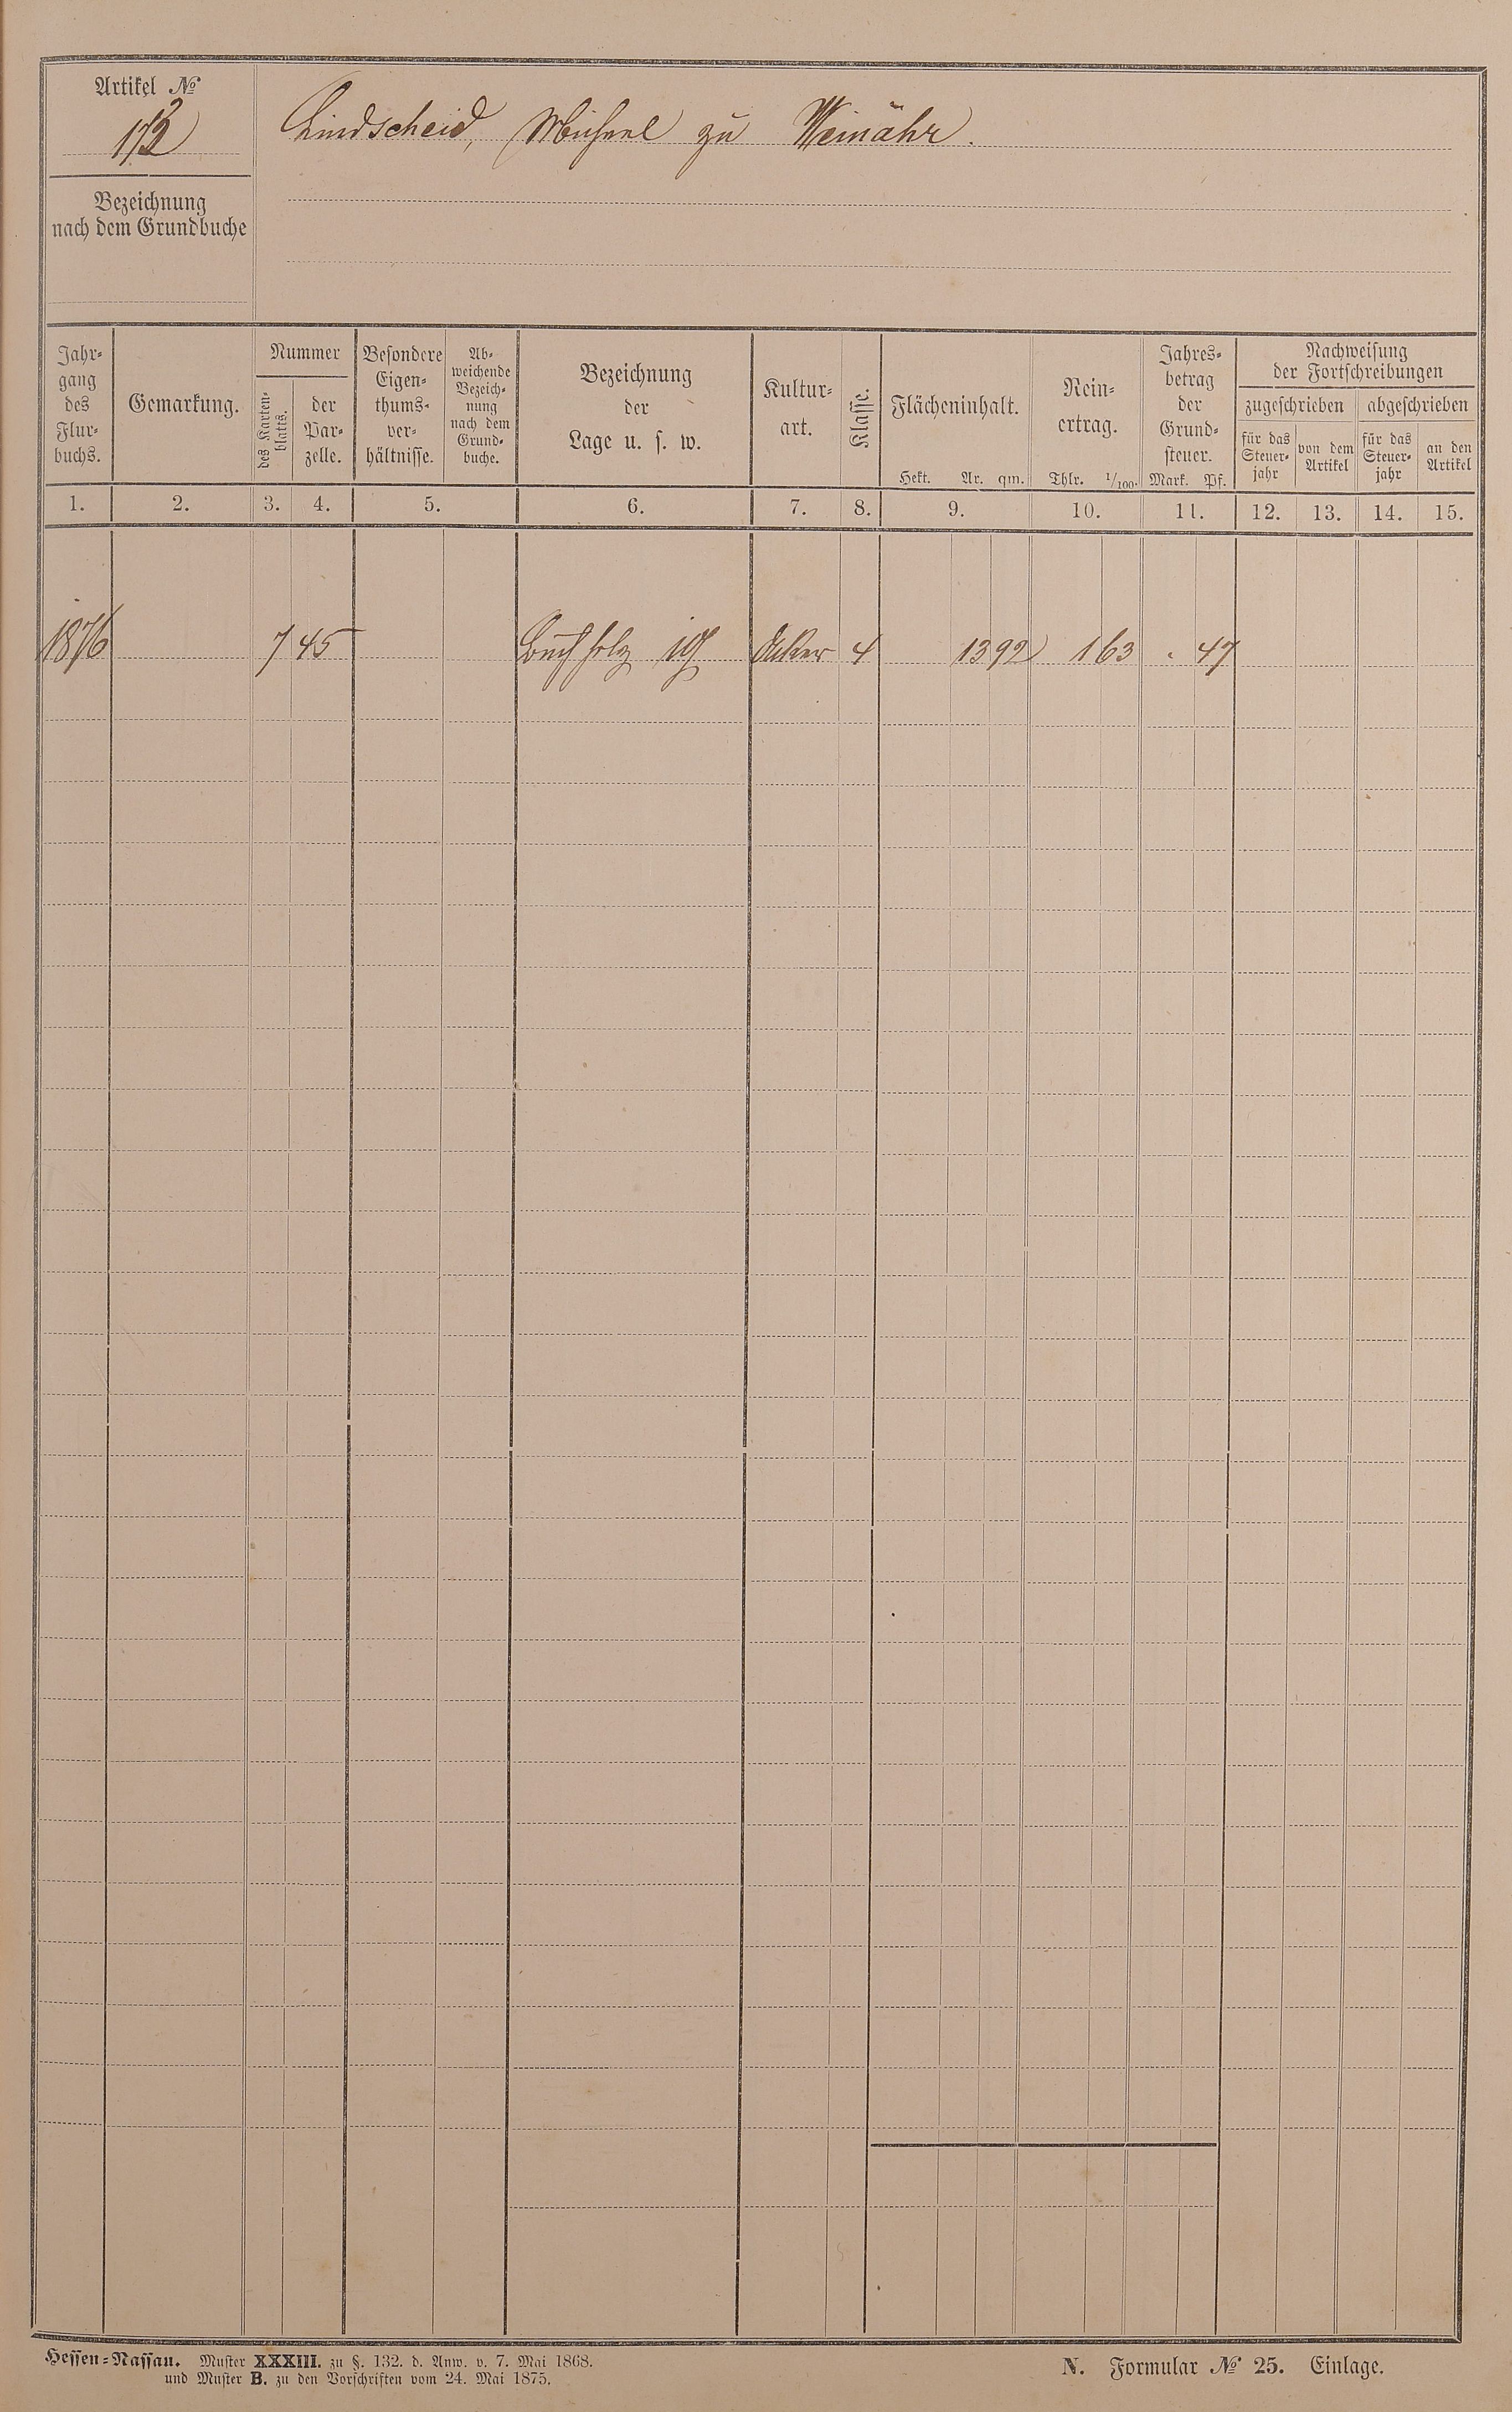 Artikel №
172
Lindscheid, Michael zu Weinähr.
Bezeichnung
nach dem Grundbuche
Jahr-
gang
des
Flur-
buchs.
Gemarkung.
Nummer
des Karten-
blatts.
der
Par-
zelle.
Besondere
Eigen-
thums-
ver-
hältnisse.
Ab-
weichende
Bezeich-
nung
nach dem
Grund-
buche.
Bezeichnung
der
Lage u. s. w.
Kultur-
art.
Klasse.
Flächeninhalt.
Hekt. Ar. qm.
Rein-
ertrag.
Thlr. 1/100.
Jahres-
betrag
der
Grund-
steuer.
Mark. Pf.
Nachweisung
der Fortschreibungen
zugeschrieben
abgeschrieben
für das
Steuer-
jahr
von dem
Artikel
für das
Steuer-
jahr
an den
Artikel
1. 2. 3. 4. 5. 6. 7. 8. 9. 10. 11. 12. 13. 14. 15.
1876 7 45 Buchholz Acker 4 13 92 1 63 . 47
Hessen-Nassau. Muster XXXIII. zu §. 132. d. Anw. v. 7. Mai 1868.
und Muster B. zu den Vorschriften vom 24. Mai 1875.
N. Formular № 25. Einlage.